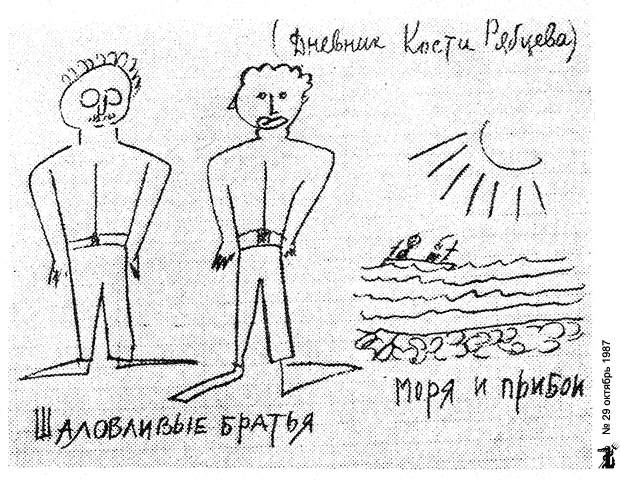 (Дневник Кости Рябцева)
Шаловливые братья
моря и прибои
№ 29 октябрь 1987